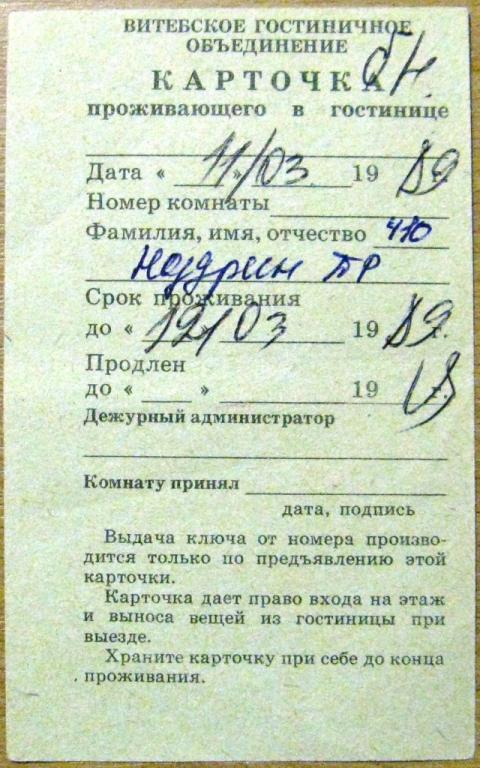 ВИТЕБСКОЕ ГОСТИНИЧНОЕ
ОБЪЕДИНЕНИЕ
КАРТОЧКА
проживающего в гостинице
Дата « 11/03 19 89
Номер комнаты
Фамилия, имя, отчество 410
Срок проживания
до « 12/03 19 89 г.
Продлен
до « » 19 г.
Дежурный администратор
Комнату принял
дата, подпись
Выдача ключа от номера произво-
дится только по предъявлению этой
карточки.
Карточка дает право входа на этаж
и выноса вещей из гостиницы при
выезде.
Храните карточку при себе до конца
проживания.